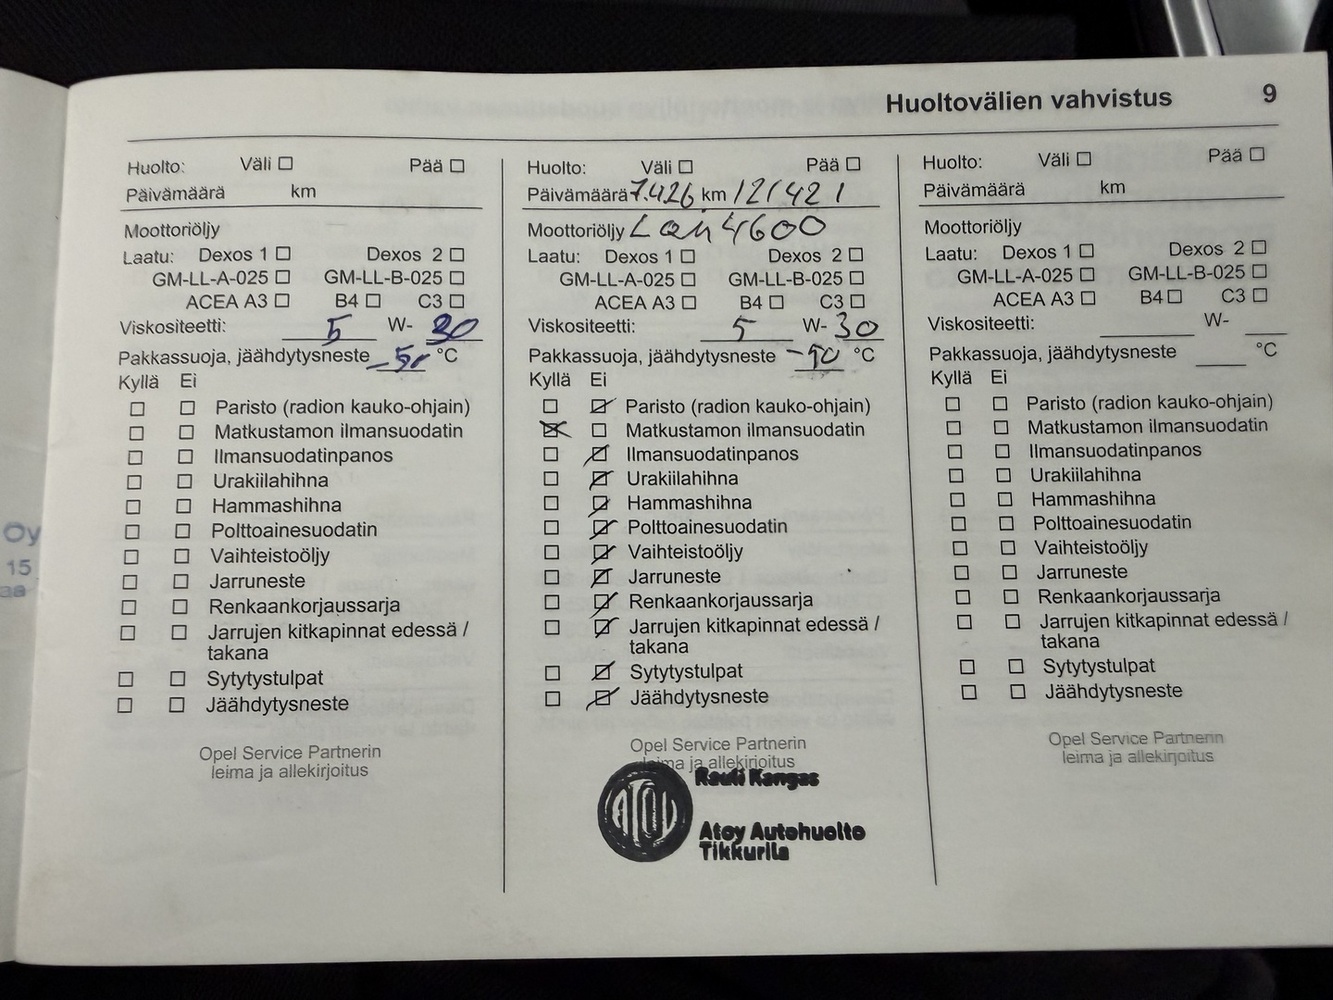 Huoltovälien vahvistus 9
Huolto: Väli ☐ Pää ☐
Päivämäärä km
Moottoriöljy
Laatu: Dexos 1 ☐ Dexos 2 ☐
GM-LL-A-025 ☐ GM-LL-B-025 ☐
ACEA A3 ☐ B4 ☐ C3 ☐
Viskositeetti: 5 W- 30
Pakkassuoja, jäähdytysneste °C
Kyllä Ei
☐ ☐ Paristo (radion kauko-ohjain)
☐ ☐ Matkustamon ilmansuodatin
☐ ☐ Ilmansuodatinpanos
☐ ☐ Urakiilahihna
☐ ☐ Hammashihna
☐ ☐ Polttoainesuodatin
☐ ☐ Vaihteistoöljy
☐ ☐ Jarruneste
☐ ☐ Renkaankorjaussarja
☐ ☐ Jarrujen kitkapinnat edessä /
takana
☐ ☐ Sytytystulpat
☐ ☐ Jäähdytysneste
Opel Service Partnerin
leima ja allekirjoitus
Huolto: Väli ☐ Pää ☐
Päivämäärä 7.4.26 km 121421
Moottoriöljy 4600
Laatu: Dexos 1 ☐ Dexos 2 ☐
GM-LL-A-025 ☐ GM-LL-B-025 ☐
ACEA A3 ☐ B4 ☐ C3 ☐
Viskositeetti: 5 W- 30
Pakkassuoja, jäähdytysneste °C
Kyllä Ei
☐ ☑ Paristo (radion kauko-ohjain)
☒ ☐ Matkustamon ilmansuodatin
☐ ☑ Ilmansuodatinpanos
☐ ☑ Urakiilahihna
☐ ☑ Hammashihna
☐ ☑ Polttoainesuodatin
☐ ☑ Vaihteistoöljy
☐ ☑ Jarruneste
☐ ☑ Renkaankorjaussarja
☐ ☑ Jarrujen kitkapinnat edessä /
takana
☐ ☑ Sytytystulpat
☐ ☑ Jäähdytysneste
Opel Service Partnerin
leima ja allekirjoitus
Rauli Kangas
ATOY
Atoy Autohuolto
Tikkurila
Huolto: Väli ☐ Pää ☐
Päivämäärä km
Moottoriöljy
Laatu: Dexos 1 ☐ Dexos 2 ☐
GM-LL-A-025 ☐ GM-LL-B-025 ☐
ACEA A3 ☐ B4 ☐ C3 ☐
Viskositeetti: W-
Pakkassuoja, jäähdytysneste °C
Kyllä Ei
☐ ☐ Paristo (radion kauko-ohjain)
☐ ☐ Matkustamon ilmansuodatin
☐ ☐ Ilmansuodatinpanos
☐ ☐ Urakiilahihna
☐ ☐ Hammashihna
☐ ☐ Polttoainesuodatin
☐ ☐ Vaihteistoöljy
☐ ☐ Jarruneste
☐ ☐ Renkaankorjaussarja
☐ ☐ Jarrujen kitkapinnat edessä /
takana
☐ ☐ Sytytystulpat
☐ ☐ Jäähdytysneste
Opel Service Partnerin
leima ja allekirjoitus
Oy
15
aa